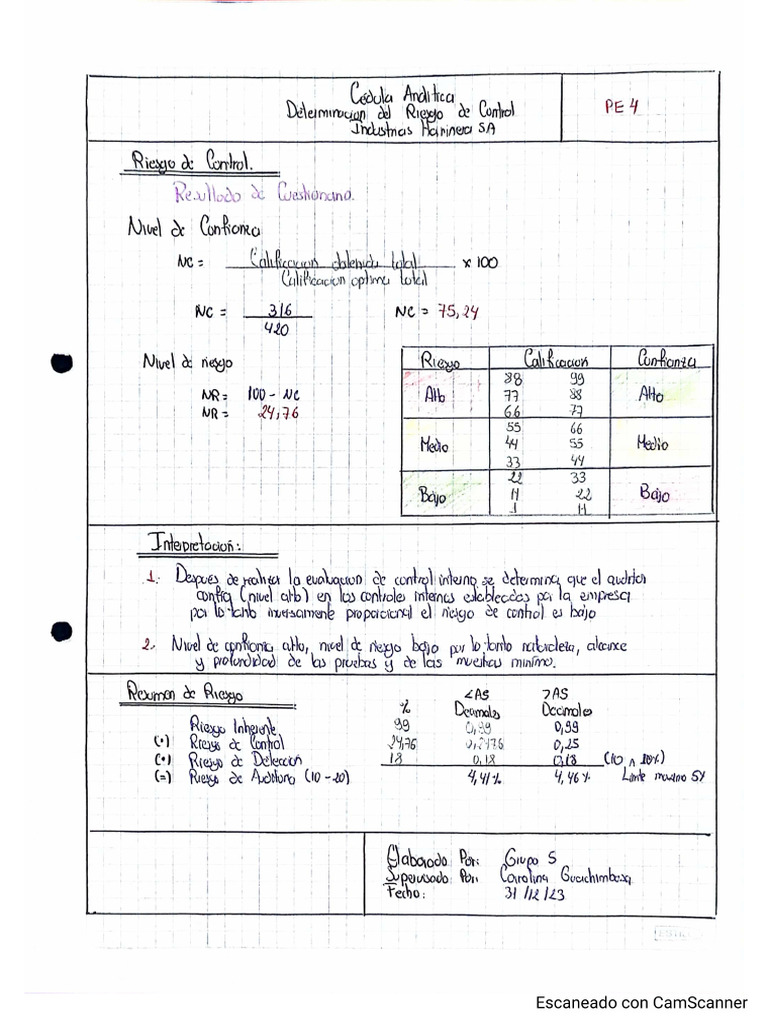 Cédula Analítica
Determinación del Riesgo de Control
Industrias Harinera SA
PE 4
Riesgo de Control.
Resultado de Cuestionario.
Nivel de Confianza
NC = Calificacion obtenida total x 100
Calificacion optima total
NC = 316 NC = 75,24
420
Nivel de riesgo
NR = 100 - NC
NR = 24,76
Riesgo Calificacion Confianza
88 99
Alto 77 88 Alto
66 77
55 66
Medio 44 55 Medio
33 44
22 33
Bajo 11 22 Bajo
1 11
Interpretación:
1. Despues de realizar la evaluacion de control interno se determina que el auditor
confía (nivel alto) en los controles internos establecidos por la empresa
por lo tanto inversamente proporcional el riesgo de control es bajo
2. Nivel de confianza alto, nivel de riesgo bajo por lo tanto naturaleza, alcance
y profundidad de las pruebas y de las muestras mínimo.
Resumen de Riesgo
<AS >AS
% Decimales Decimales
Riesgo Inherente 99 0,99 0,99
(*) Riesgo de Control 24,76 0,2476 0,25
(*) Riesgo de Detección 18 0,18 0,18 (10 20%)
(=) Riesgo de Auditoria (10 - 20) 4,41% 4,46% Limite maximo 5%
Elaborado Por: Grupo 5
Supervisado Por: Carolina Guachimbosa
Fecha: 31/12/23
ESTILO
Escaneado con CamScanner